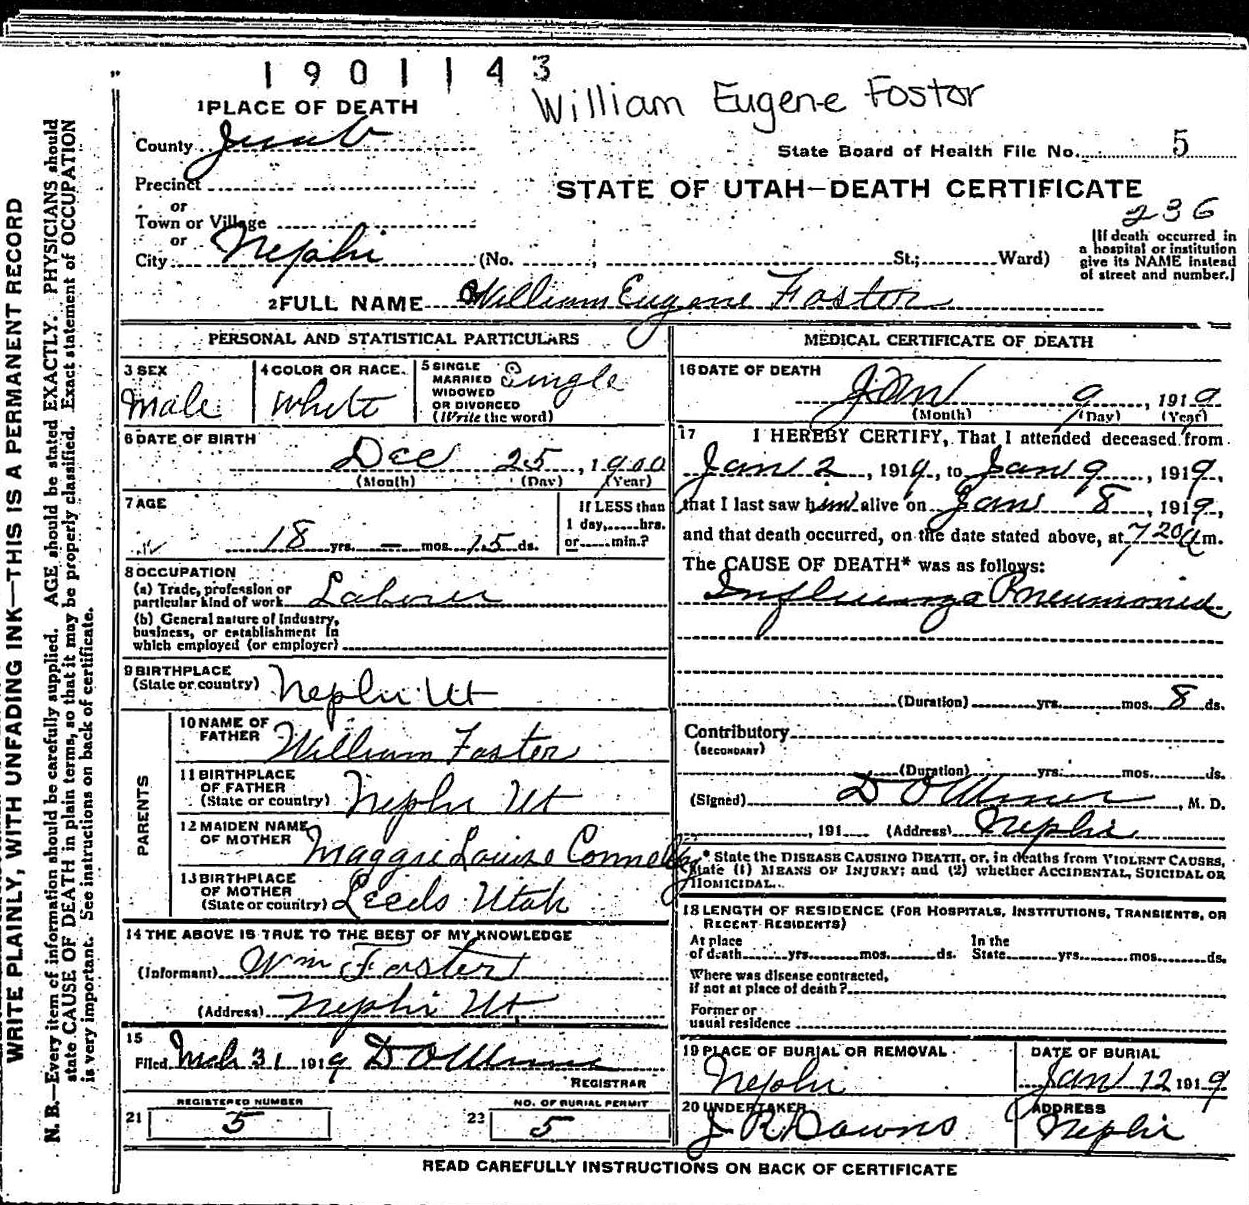 1901143
William Eugene Fostor
1 PLACE OF DEATH
County Juab
State Board of Health File No. 5
Precinct
STATE OF UTAH—DEATH CERTIFICATE
or
Town or Village
236
or
City Nephi (No. ; St.; Ward)
[If death occurred in a hospital or institution give its NAME instead of street and number.]
2 FULL NAME William Eugene Foster
PERSONAL AND STATISTICAL PARTICULARS
3 SEX
Male
4 COLOR OR RACE.
White
5 SINGLE MARRIED WIDOWED OR DIVORCED (Write the word)
Single
6 DATE OF BIRTH
Dec 25, 1900
(Month) (Day) (Year)
7 AGE
18 yrs. — mos. 15 ds.
If LESS than 1 day, hrs. or min.?
8 OCCUPATION
(a) Trade, profession or particular kind of work Laborer
(b) General nature of industry, business, or establishment in which employed (or employer)
9 BIRTHPLACE
(State or country) Nephi Ut
PARENTS
10 NAME OF FATHER William Foster
11 BIRTHPLACE OF FATHER (State or country) Nephi Ut
12 MAIDEN NAME OF MOTHER Maggie Louise Connelly
13 BIRTHPLACE OF MOTHER (State or country) Leeds Utah
14 THE ABOVE IS TRUE TO THE BEST OF MY KNOWLEDGE
(Informant) Wm Foster
(Address) Nephi Ut
15
Filed Mch 31 1919
REGISTRAR
REGISTERED NUMBER
21 5
NO. OF BURIAL PERMIT
22 5
MEDICAL CERTIFICATE OF DEATH
16 DATE OF DEATH
Jan 9, 1919
(Month) (Day) (Year)
17 I HEREBY CERTIFY, That I attended deceased from
Jan 2, 1919, to Jan 9, 1919,
that I last saw him alive on Jan 8, 1919,
and that death occurred, on the date stated above, at 7 20 a m.
The CAUSE OF DEATH* was as follows:
Influenza Pneumonia
(Duration) yrs. mos. 8 ds.
Contributory
(SECONDARY)
(Duration) yrs. mos. ds.
(Signed) , M. D.
, 191 (Address) Nephi
* State the DISEASE CAUSING DEATH, or, in deaths from VIOLENT CAUSES,
state (1) MEANS OF INJURY; and (2) whether ACCIDENTAL, SUICIDAL OR
HOMICIDAL.
18 LENGTH OF RESIDENCE (FOR HOSPITALS, INSTITUTIONS, TRANSIENTS, OR
RECENT RESIDENTS)
At place of death yrs. mos. ds. In the State yrs. mos. ds.
Where was disease contracted,
if not at place of death?
Former or
usual residence
19 PLACE OF BURIAL OR REMOVAL
Nephi
DATE OF BURIAL
Jan 12 1919
20 UNDERTAKER
J R Downs
ADDRESS
Nephi
READ CAREFULLY INSTRUCTIONS ON BACK OF CERTIFICATE
WRITE PLAINLY, WITH UNFADING INK—THIS IS A PERMANENT RECORD
N. B.—Every item of information should be carefully supplied. AGE should be stated EXACTLY. PHYSICIANS should
state CAUSE OF DEATH in plain terms, so that it may be properly classified. Exact statement of OCCUPATION
is very important. See instructions on back of certificate.